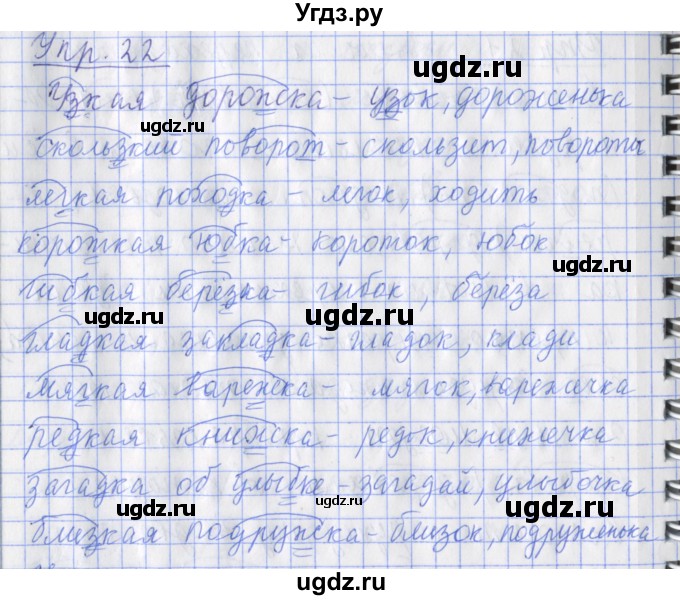 Угдз.ру
Упр. 22
ugdz.ru
Узкая дорожка - узок, дороженька
ugdz.ru
ugdz.ru
скользкий поворот - скользит, повороты
легкая походка - легок, ходить
ugdz.ru
короткая юбка - короток, юбок
ugdz.ru
гибкая берёзка - гибок, берёза
ugdz.ru
ugdz.ru
гладкая закладка - гладок, клади
мягкая варежка - мягок, варежечка
ugdz.ru
редкая книжка - редок, книжечка
загадка об улыбке - загадай, улыбочка
ugdz.ru
ugdz.ru
близкая подружка - близок, подруженька
ugdz.ru